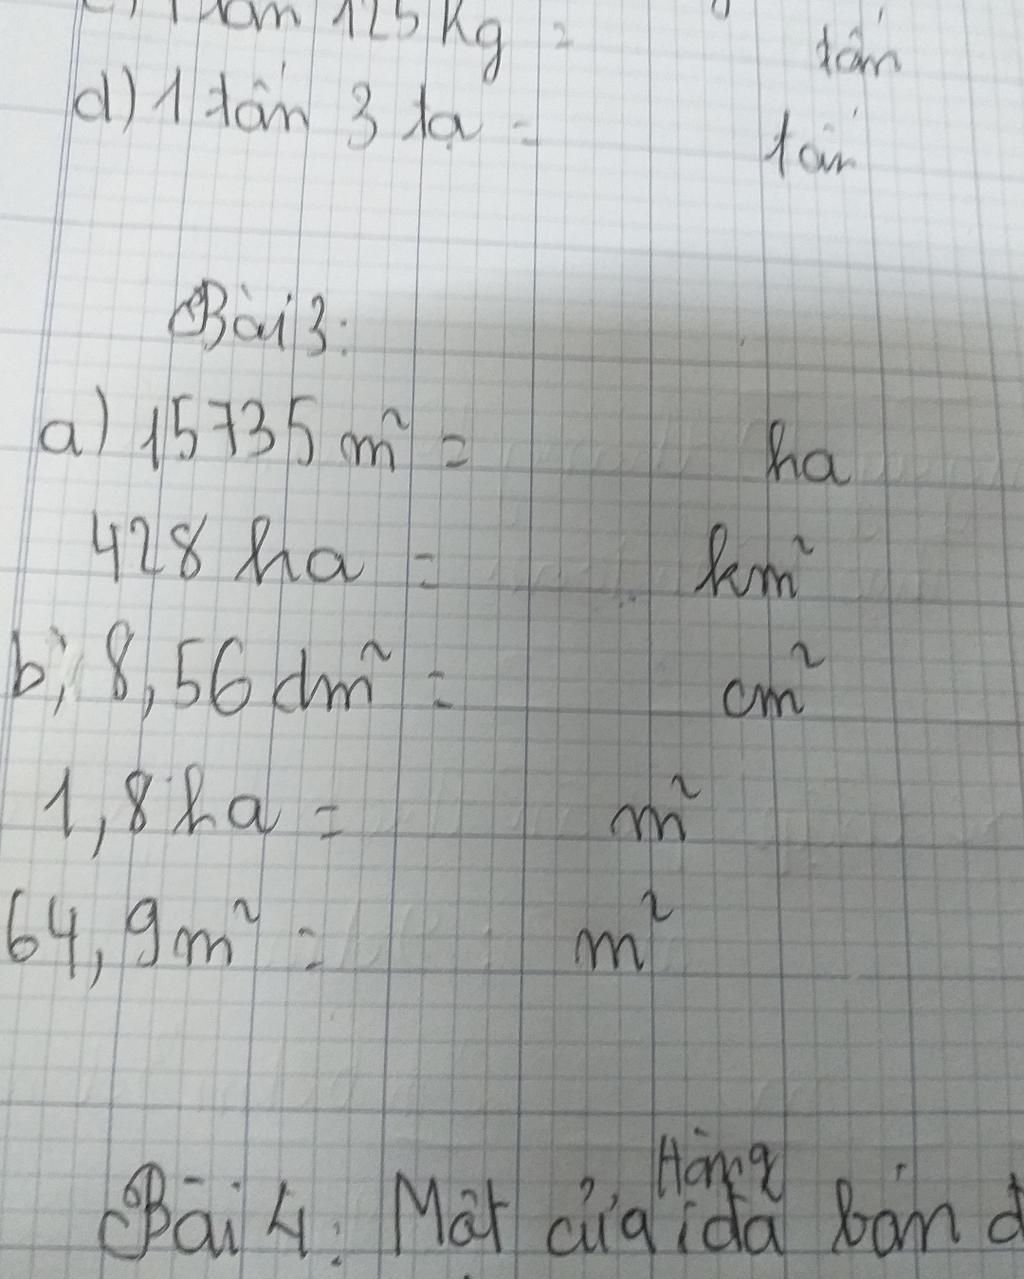 125 kg = tấn
d) 1 tấn 3 tạ = tấn
Bài 3:
a) 15735 m² = ha
428 ha = km²
b; 8,56 dm² = cm²
1,8 ha = m²
64,9 m² = m²
Hàng
Bài 4: Một cửa đã bán